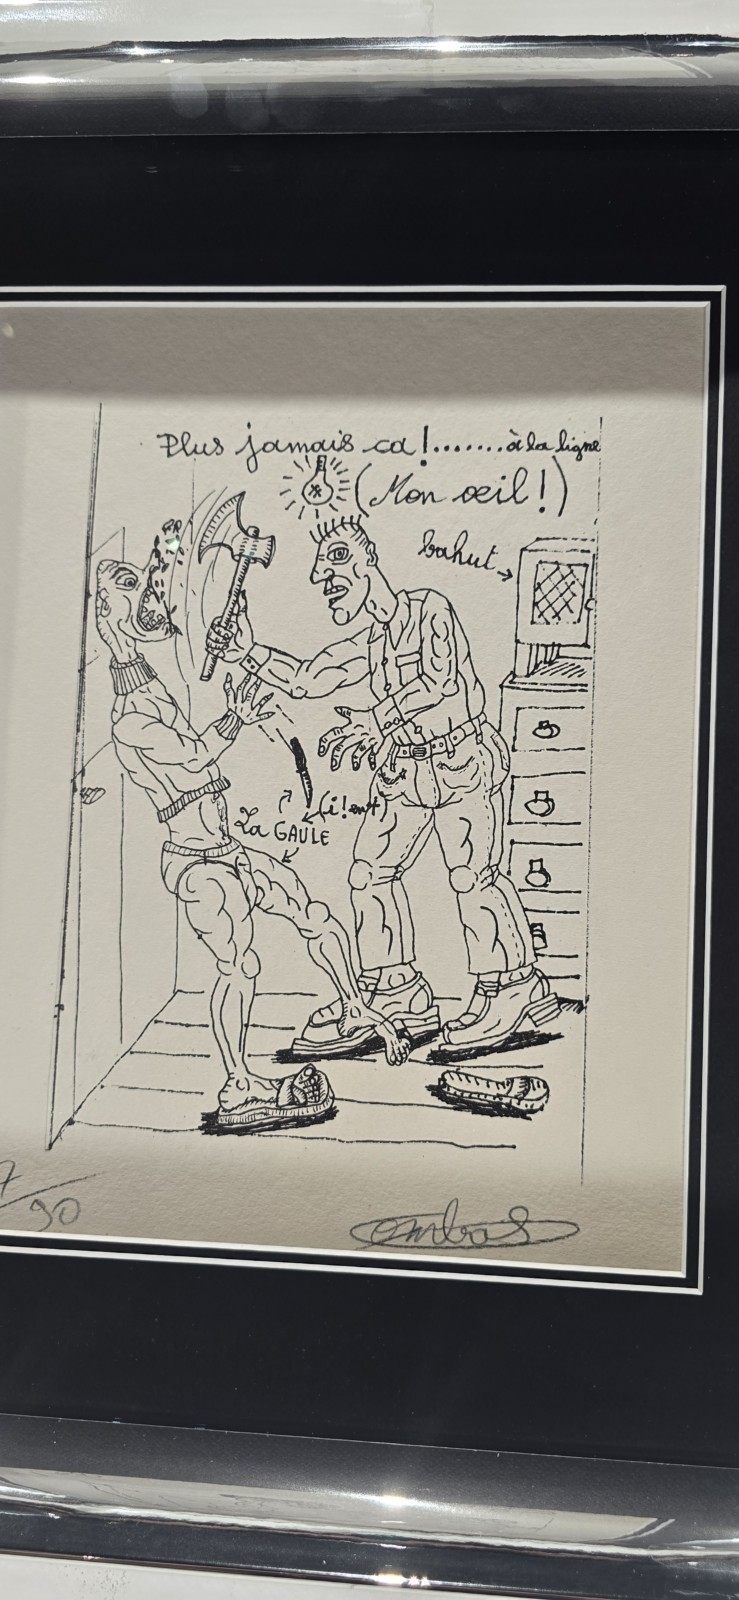 Plus jamais ca!.......à la ligne
(Mon œil!)
bahut
La GAULE
7/90
Combas